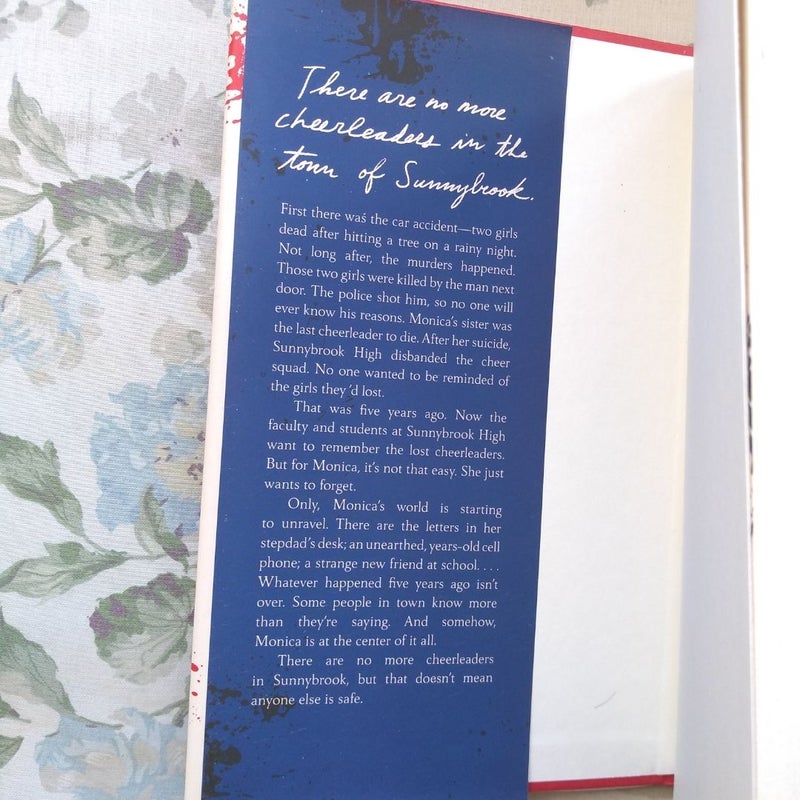 There are no more
cheerleaders in the
town of Sunnybrook.
First there was the car accident—two girls
dead after hitting a tree on a rainy night.
Not long after, the murders happened.
Those two girls were killed by the man next
door. The police shot him, so no one will
ever know his reasons. Monica's sister was
the last cheerleader to die. After her suicide,
Sunnybrook High disbanded the cheer
squad. No one wanted to be reminded of
the girls they'd lost.
That was five years ago. Now the
faculty and students at Sunnybrook High
want to remember the lost cheerleaders.
But for Monica, it's not that easy. She just
wants to forget.
Only, Monica's world is starting
to unravel. There are the letters in her
stepdad's desk; an unearthed, years-old cell
phone; a strange new friend at school. . . .
Whatever happened five years ago isn't
over. Some people in town know more
than they're saying. And somehow,
Monica is at the center of it all.
There are no more cheerleaders
in Sunnybrook, but that doesn't mean
anyone else is safe.